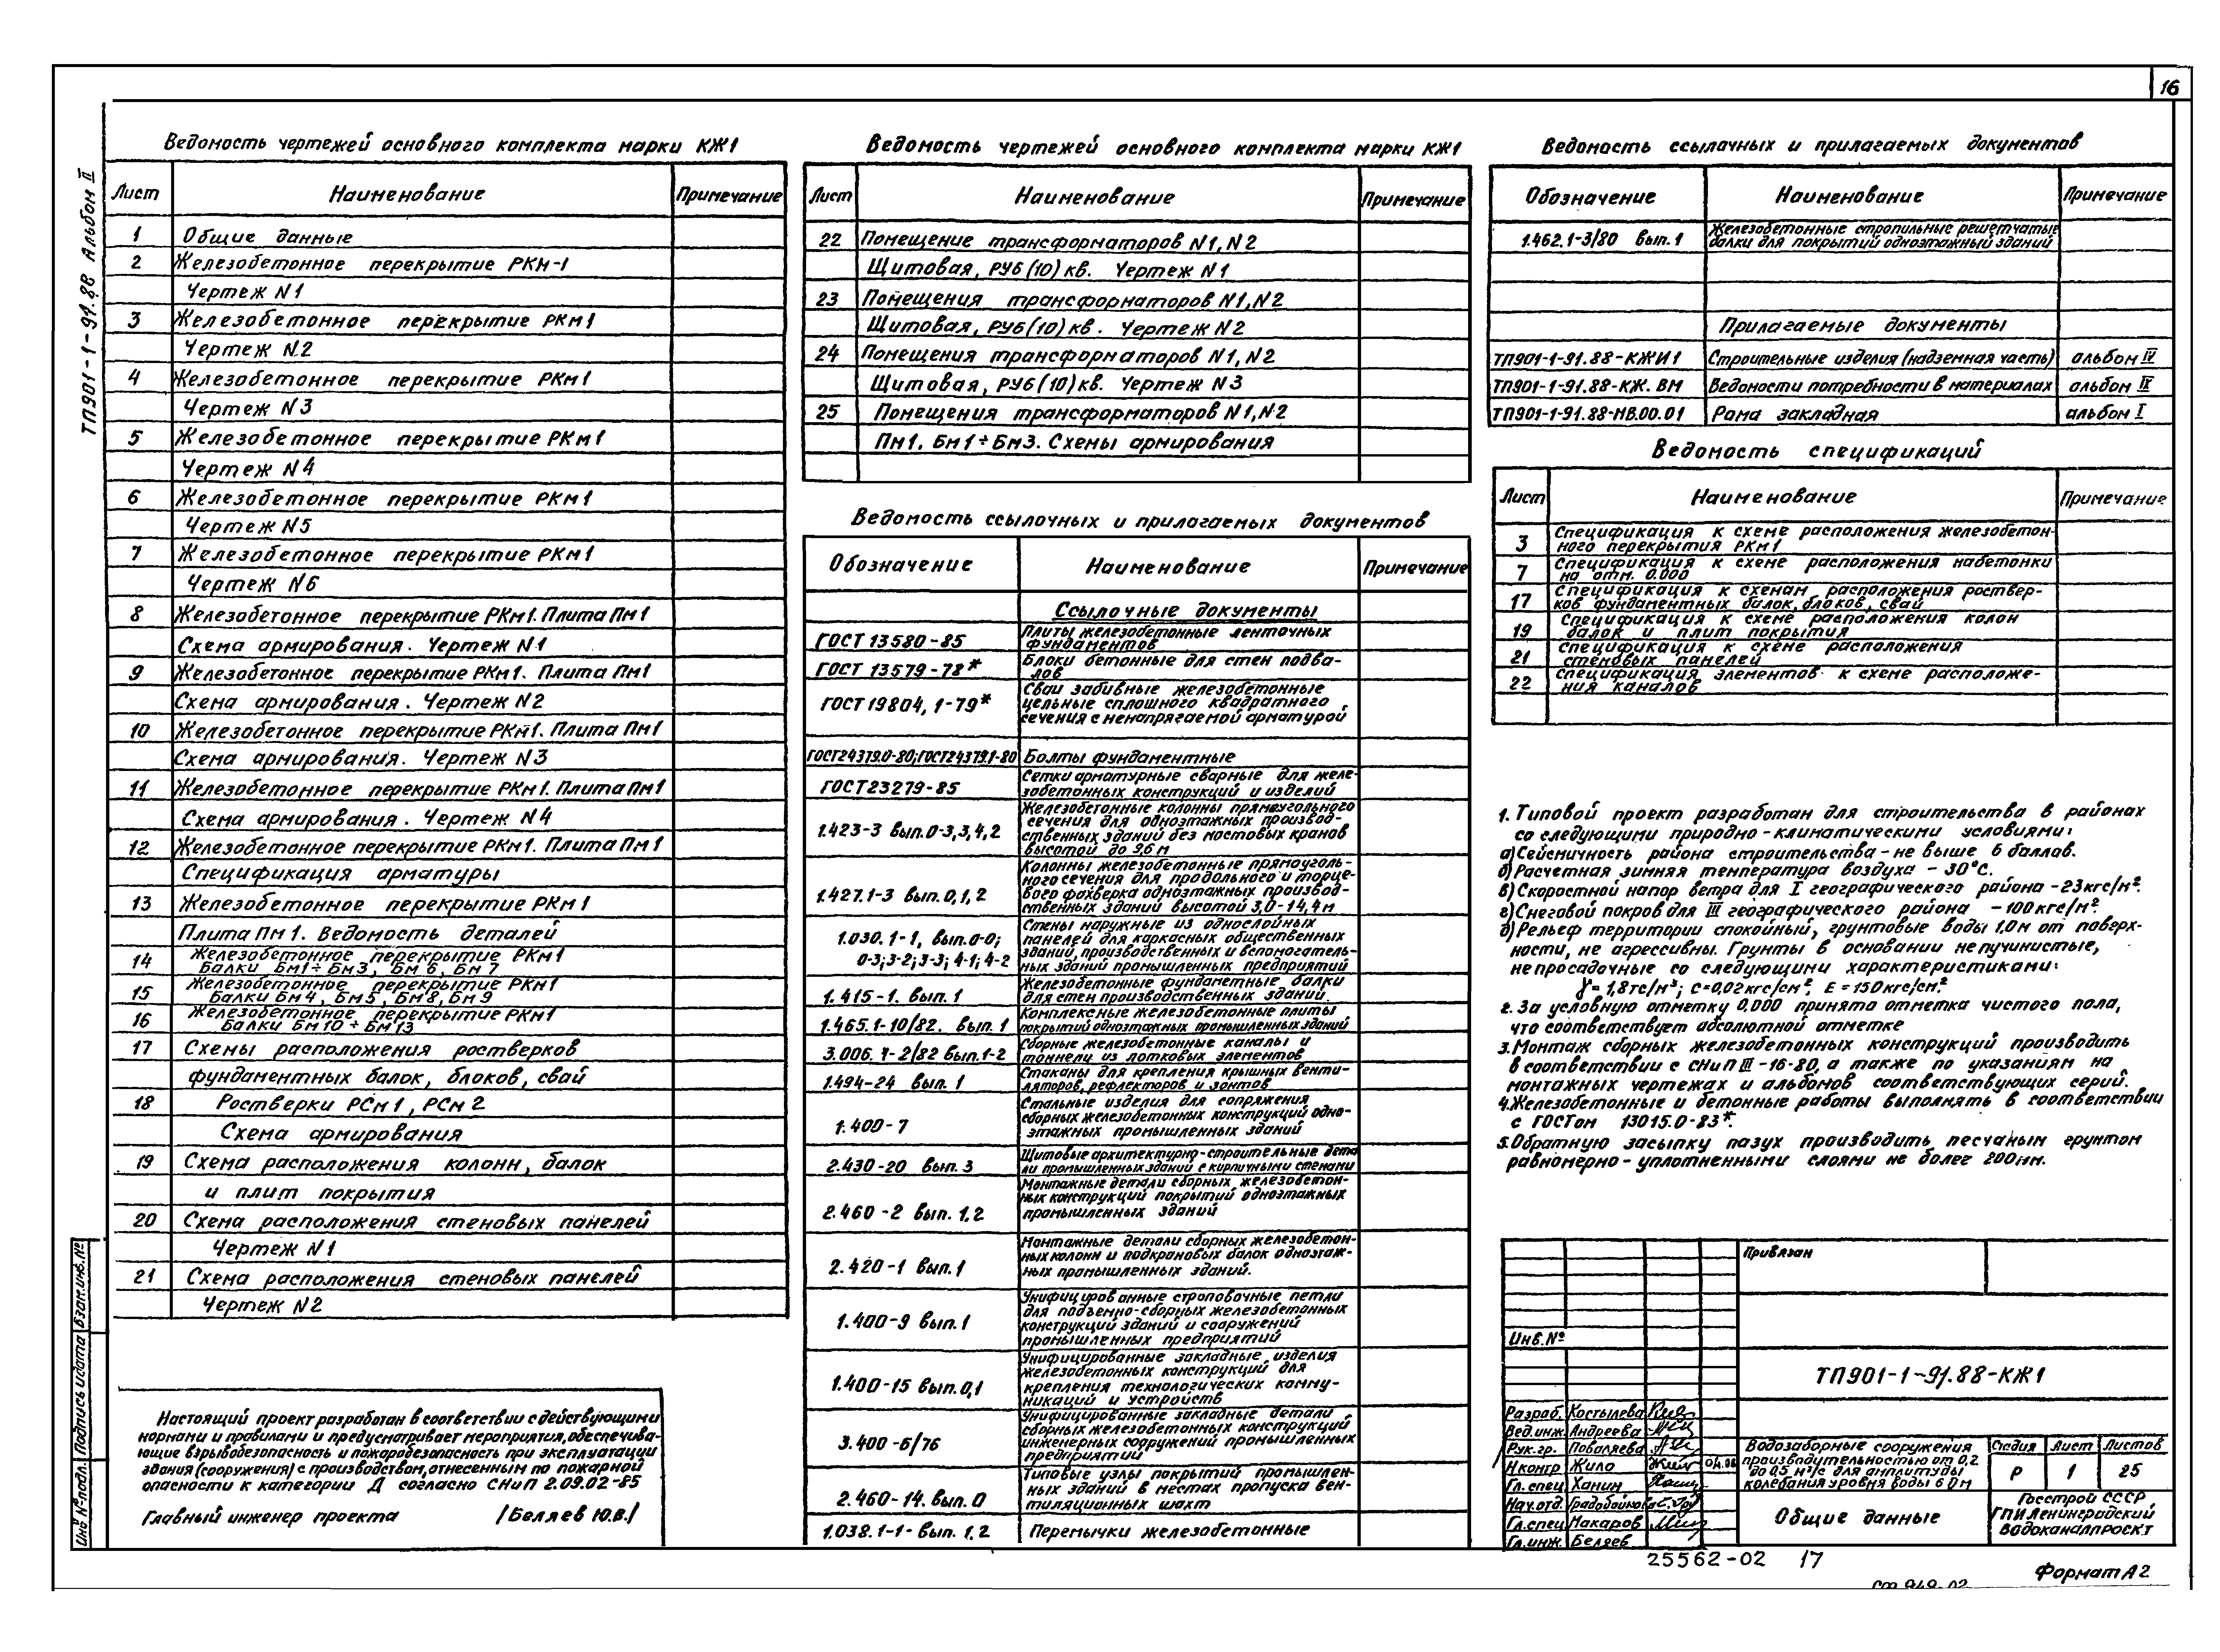 16
ТП901-1-91.88 Альбом II
Ведомость чертежей основного комплекта марки КЖ1
Лист Наименование Примечание
1 Общие данные
2 Железобетонное перекрытие РКм-1
Чертеж N1
3 Железобетонное перекрытие РКм1
Чертеж N2
4 Железобетонное перекрытие РКм1
Чертеж N3
5 Железобетонное перекрытие РКм1
Чертеж N4
6 Железобетонное перекрытие РКм1
Чертеж N5
7 Железобетонное перекрытие РКм1
Чертеж N6
8 Железобетонное перекрытие РКм1. Плита Пм1
Схема армирования. Чертеж N1
9 Железобетонное перекрытие РКм1. Плита Пм1
Схема армирования. Чертеж N2
10 Железобетонное перекрытие РКм1. Плита Пм1
Схема армирования. Чертеж N3
11 Железобетонное перекрытие РКм1. Плита Пм1
Схема армирования. Чертеж N4
12 Железобетонное перекрытие РКм1. Плита Пм1
Спецификация арматуры
13 Железобетонное перекрытие РКм1
Плита Пм1. Ведомость деталей
14 Железобетонное перекрытие РКм1
Балки Бм1÷Бм3, Бм6, Бм7
15 Железобетонное перекрытие РКм1
Балки Бм4, Бм5, Бм8, Бм9
16 Железобетонное перекрытие РКм1
Балки Бм10÷Бм13
17 Схемы расположения ростверков
фундаментных балок, блоков, свай
18 Ростверки РСм1, РСм2
Схема армирования
19 Схема расположения колонн, балок
и плит покрытия
20 Схема расположения стеновых панелей
Чертеж N1
21 Схема расположения стеновых панелей
Чертеж N2
Настоящий проект разработан в соответствии с действующими
нормами и правилами и предусматривает мероприятия, обеспечива-
ющие взрывобезопасность и пожаробезопасность при эксплуатации
здания (сооружения) с производством, отнесенным по пожарной
опасности к категории Д согласно СНиП 2.09.02-85
Главный инженер проекта /Беляев Ю.В./
Инв.№ подл. Подпись и дата Взам.инв.№
Ведомость чертежей основного комплекта марки КЖ1
Лист Наименование Примечание
22 Помещение трансформаторов N1, N2
Щитовая, РУ6(10)кв. Чертеж N1
23 Помещения трансформаторов N1, N2
Щитовая, РУ6(10)кв. Чертеж N2
24 Помещения трансформаторов N1, N2
Щитовая, РУ6(10)кв. Чертеж N3
25 Помещения трансформаторов N1, N2
Пм1. Бм1÷Бм3. Схемы армирования
Ведомость ссылочных и прилагаемых документов
Обозначение Наименование Примечание
Ссылочные документы
ГОСТ 13580-85 Плиты железобетонные ленточных
фундаментов
ГОСТ 13579-78* Блоки бетонные для стен подва-
лов
ГОСТ 19804,1-79* Сваи забивные железобетонные
цельные сплошного квадратного
сечения с ненапрягаемой арматурой
ГОСТ24379.0-80; ГОСТ24379.1-80 Болты фундаментные
ГОСТ23279-85 Сетки арматурные сварные для желе-
зобетонных конструкций и изделий
1.423-3 вып.0-3,3,4,2 Железобетонные колонны прямоугольного
сечения для одноэтажных производ-
ственных зданий без мостовых кранов
высотой до 9.6 м
1.427.1-3 вып.0,1,2 Колонны железобетонные прямоуголь-
ного сечения для продольного и торце-
вого фахверка одноэтажных производ-
ственных зданий высотой 3,0-14,4м
1.030.1-1, вып.0-0;
0-3;3-2;3-3; 4-1; 4-2 Стены наружные из однослойных
панелей для каркасных общественных
зданий, производственных и вспомогатель-
ных зданий промышленных предприятий
1.415-1. вып.1 Железобетонные фундаметные балки
для стен производственных зданий
1.465.1-10/82. вып.1 Комплексные железобетонные плиты
покрытий одноэтажных промышленных зданий
3.006.1-2/82 вып.1-2 Сборные железобетонные каналы и
тоннели из лотковых элементов
1.494-24 вып.1 Стаканы для крепления крышных венти-
ляторов, рефлекторов и зонтов
1.400-7 Стальные изделия для сопряжения
сборных железобетонных конструкций одно-
этажных промышленных зданий
2.430-20 вып.3 Щитовые архитектурно-строительные дета
ли промышленных зданий с кирпичными стенами
2.460-2 вып.1.2 Монтажные детали сборных железобетон-
ных конструкций покрытий одноэтажных
промышленных зданий
2.420-1 вып.1 Монтажные детали сборных железобетон-
ных колонн и подкрановых балок одноэтаж-
ных промышленных зданий.
1.400-9 вып.1 Унифицированные строповочные петли
для подъемно-сборных железобетонных
конструкций зданий и сооружений
промышленных предприятий
1.400-15 вып.0,1 Унифицированные закладные изделия
железобетонных конструкций для
крепления технологических комму-
никаций и устройств
3.400-6/76 Унифицированные закладные детали
сборных железобетонных конструкций
инженерных сооружений промышленных
предприятий
2.460-14. вып.0 Типовые узлы покрытий промышлен-
ных зданий в местах пропуска вен-
тиляционных шахт
1.038.1-1- вып.1.2 Перемычки железобетонные
Ведомость ссылочных и прилагаемых документов
Обозначение Наименование Примечание
1.462.1-3/80 вып.1 Железобетонные стропильные решетчатые
балки для покрытий одноэтажный зданий
Прилагаемые документы
ТП901-1-91.88-КЖИ1 Строительные изделия (надземная часть) альбом IV
ТП901-1-91.88-КЖ.ВМ Ведомости потребности в материалах альбом IX
ТП901-1-91.88-МВ.00.01 Рама закладная альбом I
Ведомость спецификаций
Лист Наименование Примечание
3 Спецификация к схеме расположения железобетон-
ного перекрытия РКм1
7 Спецификация к схеме расположения набетонки
на отм. 0.000
17 Спецификация к схемам расположения роствер-
ков фундаментных балок, блоков, свай
19 Спецификация к схеме расположения колон
балок и плит покрытия
21 Спецификация к схеме расположения
стеновых панелей
22 Спецификация элементов к схеме расположе-
ния каналов
1. Типовой проект разработан для строительства в районах
со следующими природно-климатическими условиями:
а) Сейсмичность района строительства - не выше 6 баллов.
б) Расчетная зимняя температура воздуха - 30°С.
в) Скоростной напор ветра для I географического района - 23кгс/м².
г) Снеговой покров для III географического района - 100кгс/м².
д) Рельеф территории спокойный, грунтовые воды 1.0м от поверх-
ности, не агрессивны. Грунты в основании непучинистые,
непросадочные со следующими характеристиками:
γ=1,8тс/м³; С=0,02кгс/см², Е=150кгс/см².
2. За условную отметку 0.000 принята отметка чистого пола,
что соответствует абсолютной отметке
3. Монтаж сборных железобетонных конструкций производить
в соответствии с СНиП III-16-80, а также по указаниям на
монтажных чертежах и альбомов соответствующих серий.
4. Железобетонные и бетонные работы выполнять в соответствии
с ГОСТом 13015.0-83*.
5. Обратную засыпку пазух производить песчаным грунтом
равномерно-уплотненными слоями не более 200мм.
Привязан
Инв.№
ТП901-1-91.88-КЖ1
Разраб. Костылева
Вед.инж. Андреева
Рук.гр. Поваляева
Н контр Жило
Гл.спец Ханин
Нач.отд.
Гл.спец Макаров
Гл.инж. Беляев
Водозаборные сооружения
производительностью от 0,2
до 0,5 м³/с для амплитуды
колебания уровня воды 6.0м
Стадия Лист Листов
Р 1 25
Общие данные
Госстрой СССР
ГПИ Ленинградский
Водоканалпроект
25562-02 17
Формат А2